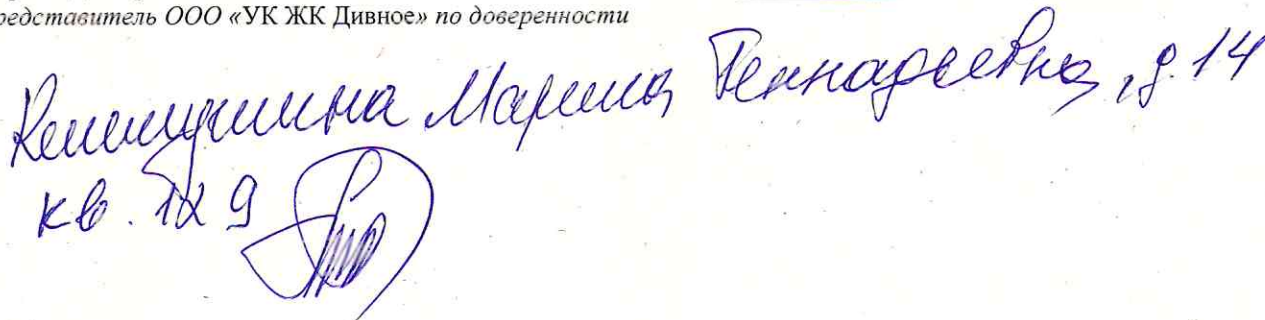 редставитель ООО «УК ЖК Дивное» по доверенности
Марина Геннадьевна, д. 14
кв. 129